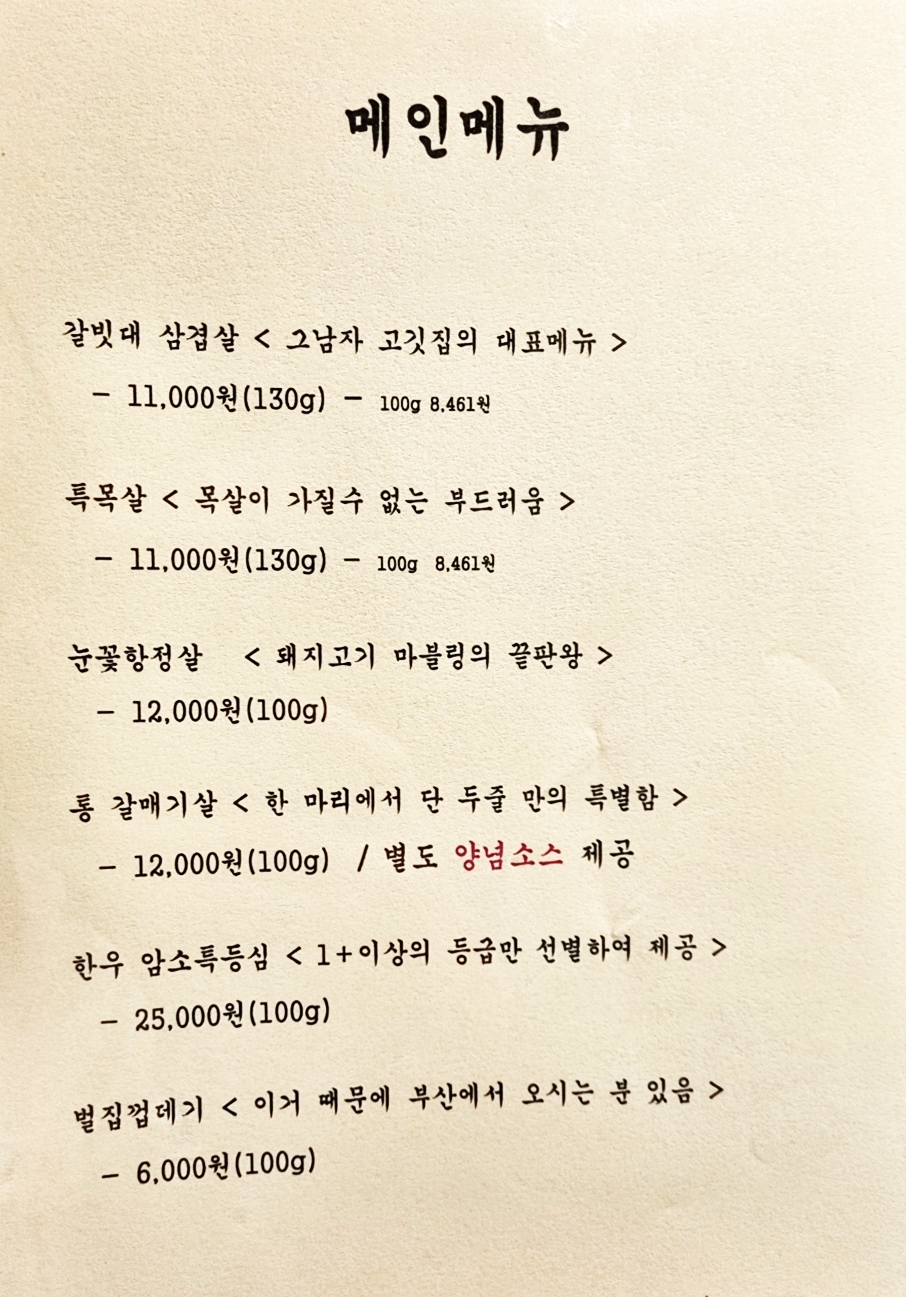 메인메뉴
갈빗대 삼겹살 < 그남자 고깃집의 대표메뉴 >
– 11,000원(130g) – 100g 8,461원
특목살 < 목살이 가질수 없는 부드러움 >
– 11,000원(130g) – 100g 8,461원
눈꽃항정살 < 돼지고기 마블링의 끝판왕 >
– 12,000원(100g)
통 갈매기살 < 한 마리에서 단 두줄 만의 특별함 >
– 12,000원(100g) / 별도 양념소스 제공
한우 암소특등심 < 1+이상의 등급만 선별하여 제공 >
– 25,000원(100g)
벌집껍데기 < 이거 때문에 부산에서 오시는 분 있음 >
– 6,000원(100g)